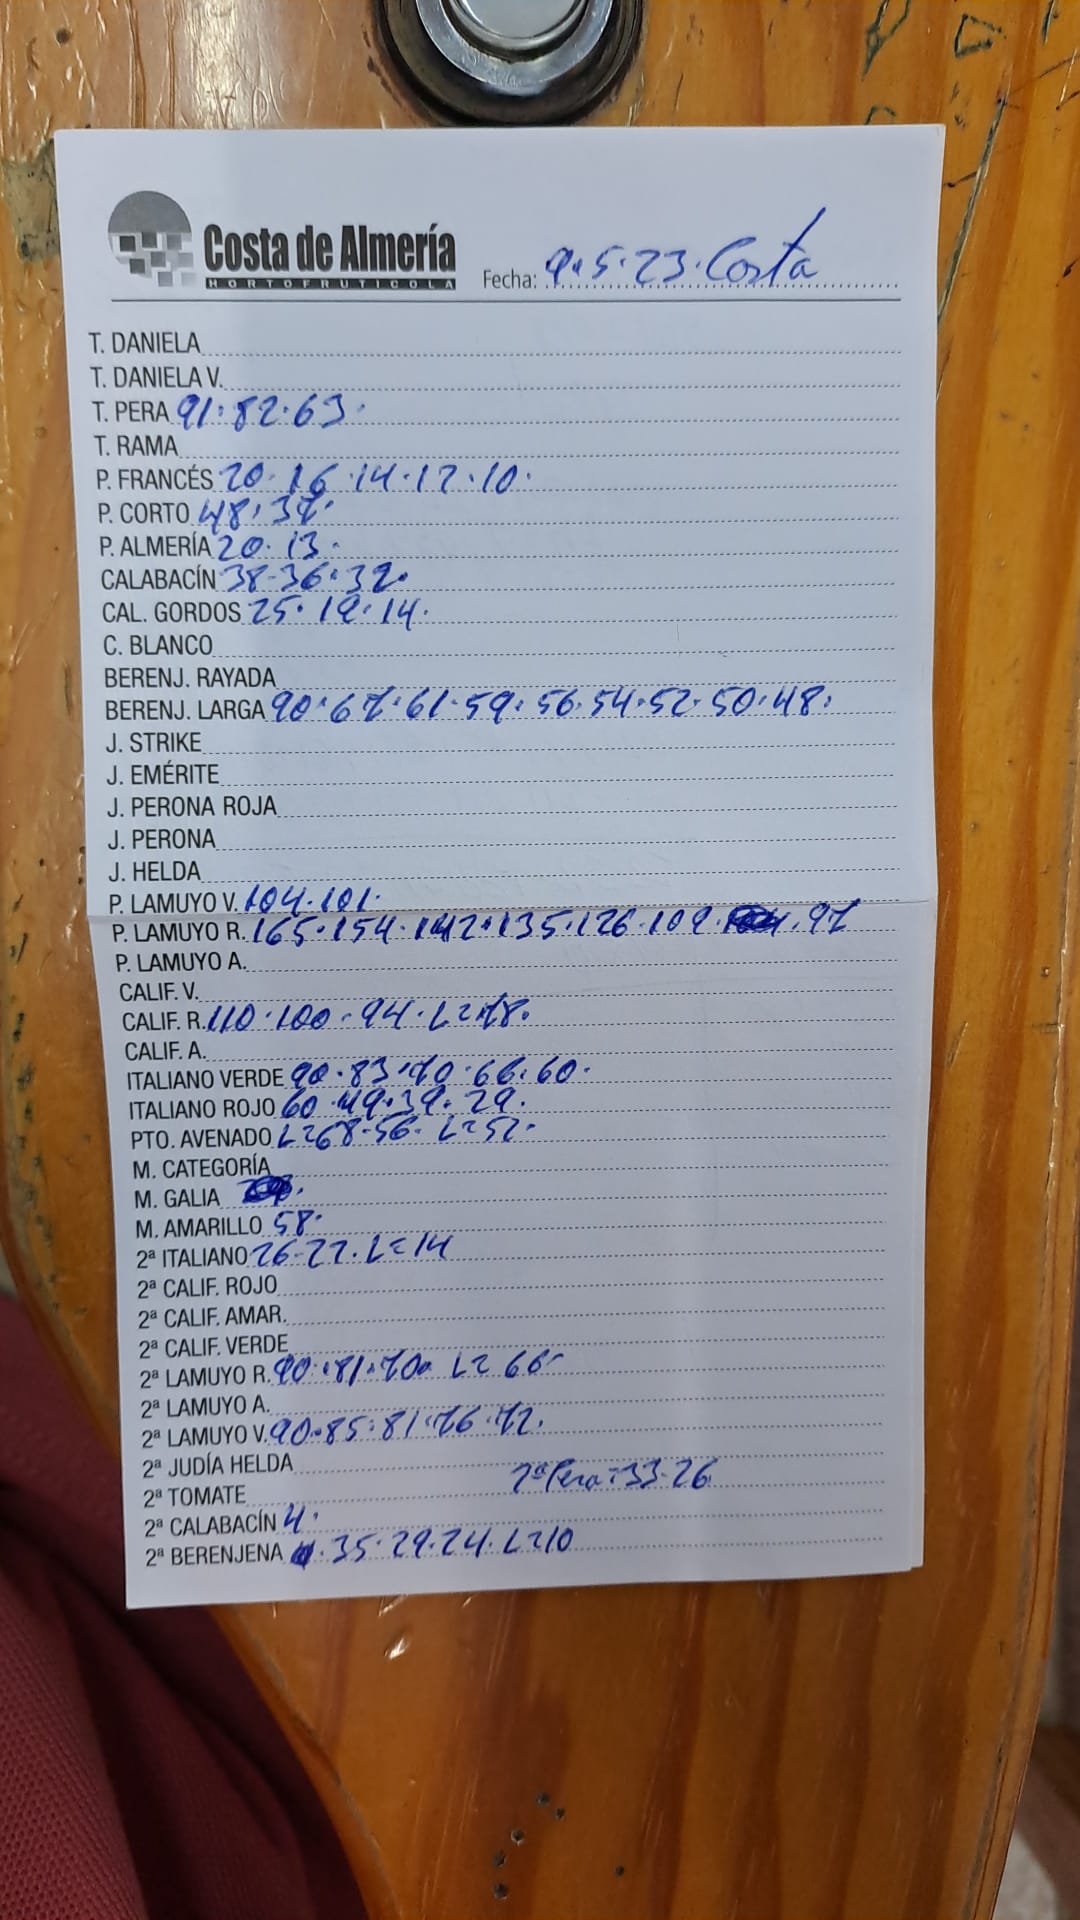 Costa de Almería
HORTOFRUTICOLA
Fecha: 9.5.23. Costa
T. DANIELA
T. DANIELA V.
T. PERA 91.82.63.
T. RAMA
P. FRANCÉS 20.16.14.12.10.
P. CORTO 48.37.
P. ALMERÍA 20.13.
CALABACÍN 38-36.32.
CAL. GORDOS 25.19.14.
C. BLANCO
BERENJ. RAYADA
BERENJ. LARGA 90.67.61.59.56.54.52.50.48.
J. STRIKE
J. EMÉRITE
J. PERONA ROJA
J. PERONA
J. HELDA
P. LAMUYO V. 104.101.
P. LAMUYO R. 165.154.142.135.126.109. .97
P. LAMUYO A.
CALIF. V.
CALIF. R. 110.100.94.L=78.
CALIF. A.
ITALIANO VERDE 90.83.70.66.60.
ITALIANO ROJO 60.49.39.29.
PTO. AVENADO L=68-56. L=52.
M. CATEGORÍA
M. GALIA
M. AMARILLO 58.
2ª ITALIANO 26-22. L=14
2ª CALIF. ROJO
2ª CALIF. AMAR.
2ª CALIF. VERDE
2ª LAMUYO R. 90.81.70. L=66-
2ª LAMUYO A.
2ª LAMUYO V. 90.85.81.76.72.
2ª JUDÍA HELDA
2ª Pera=33-26
2ª TOMATE
2ª CALABACÍN 4.
2ª BERENJENA .35.29.24. L=10